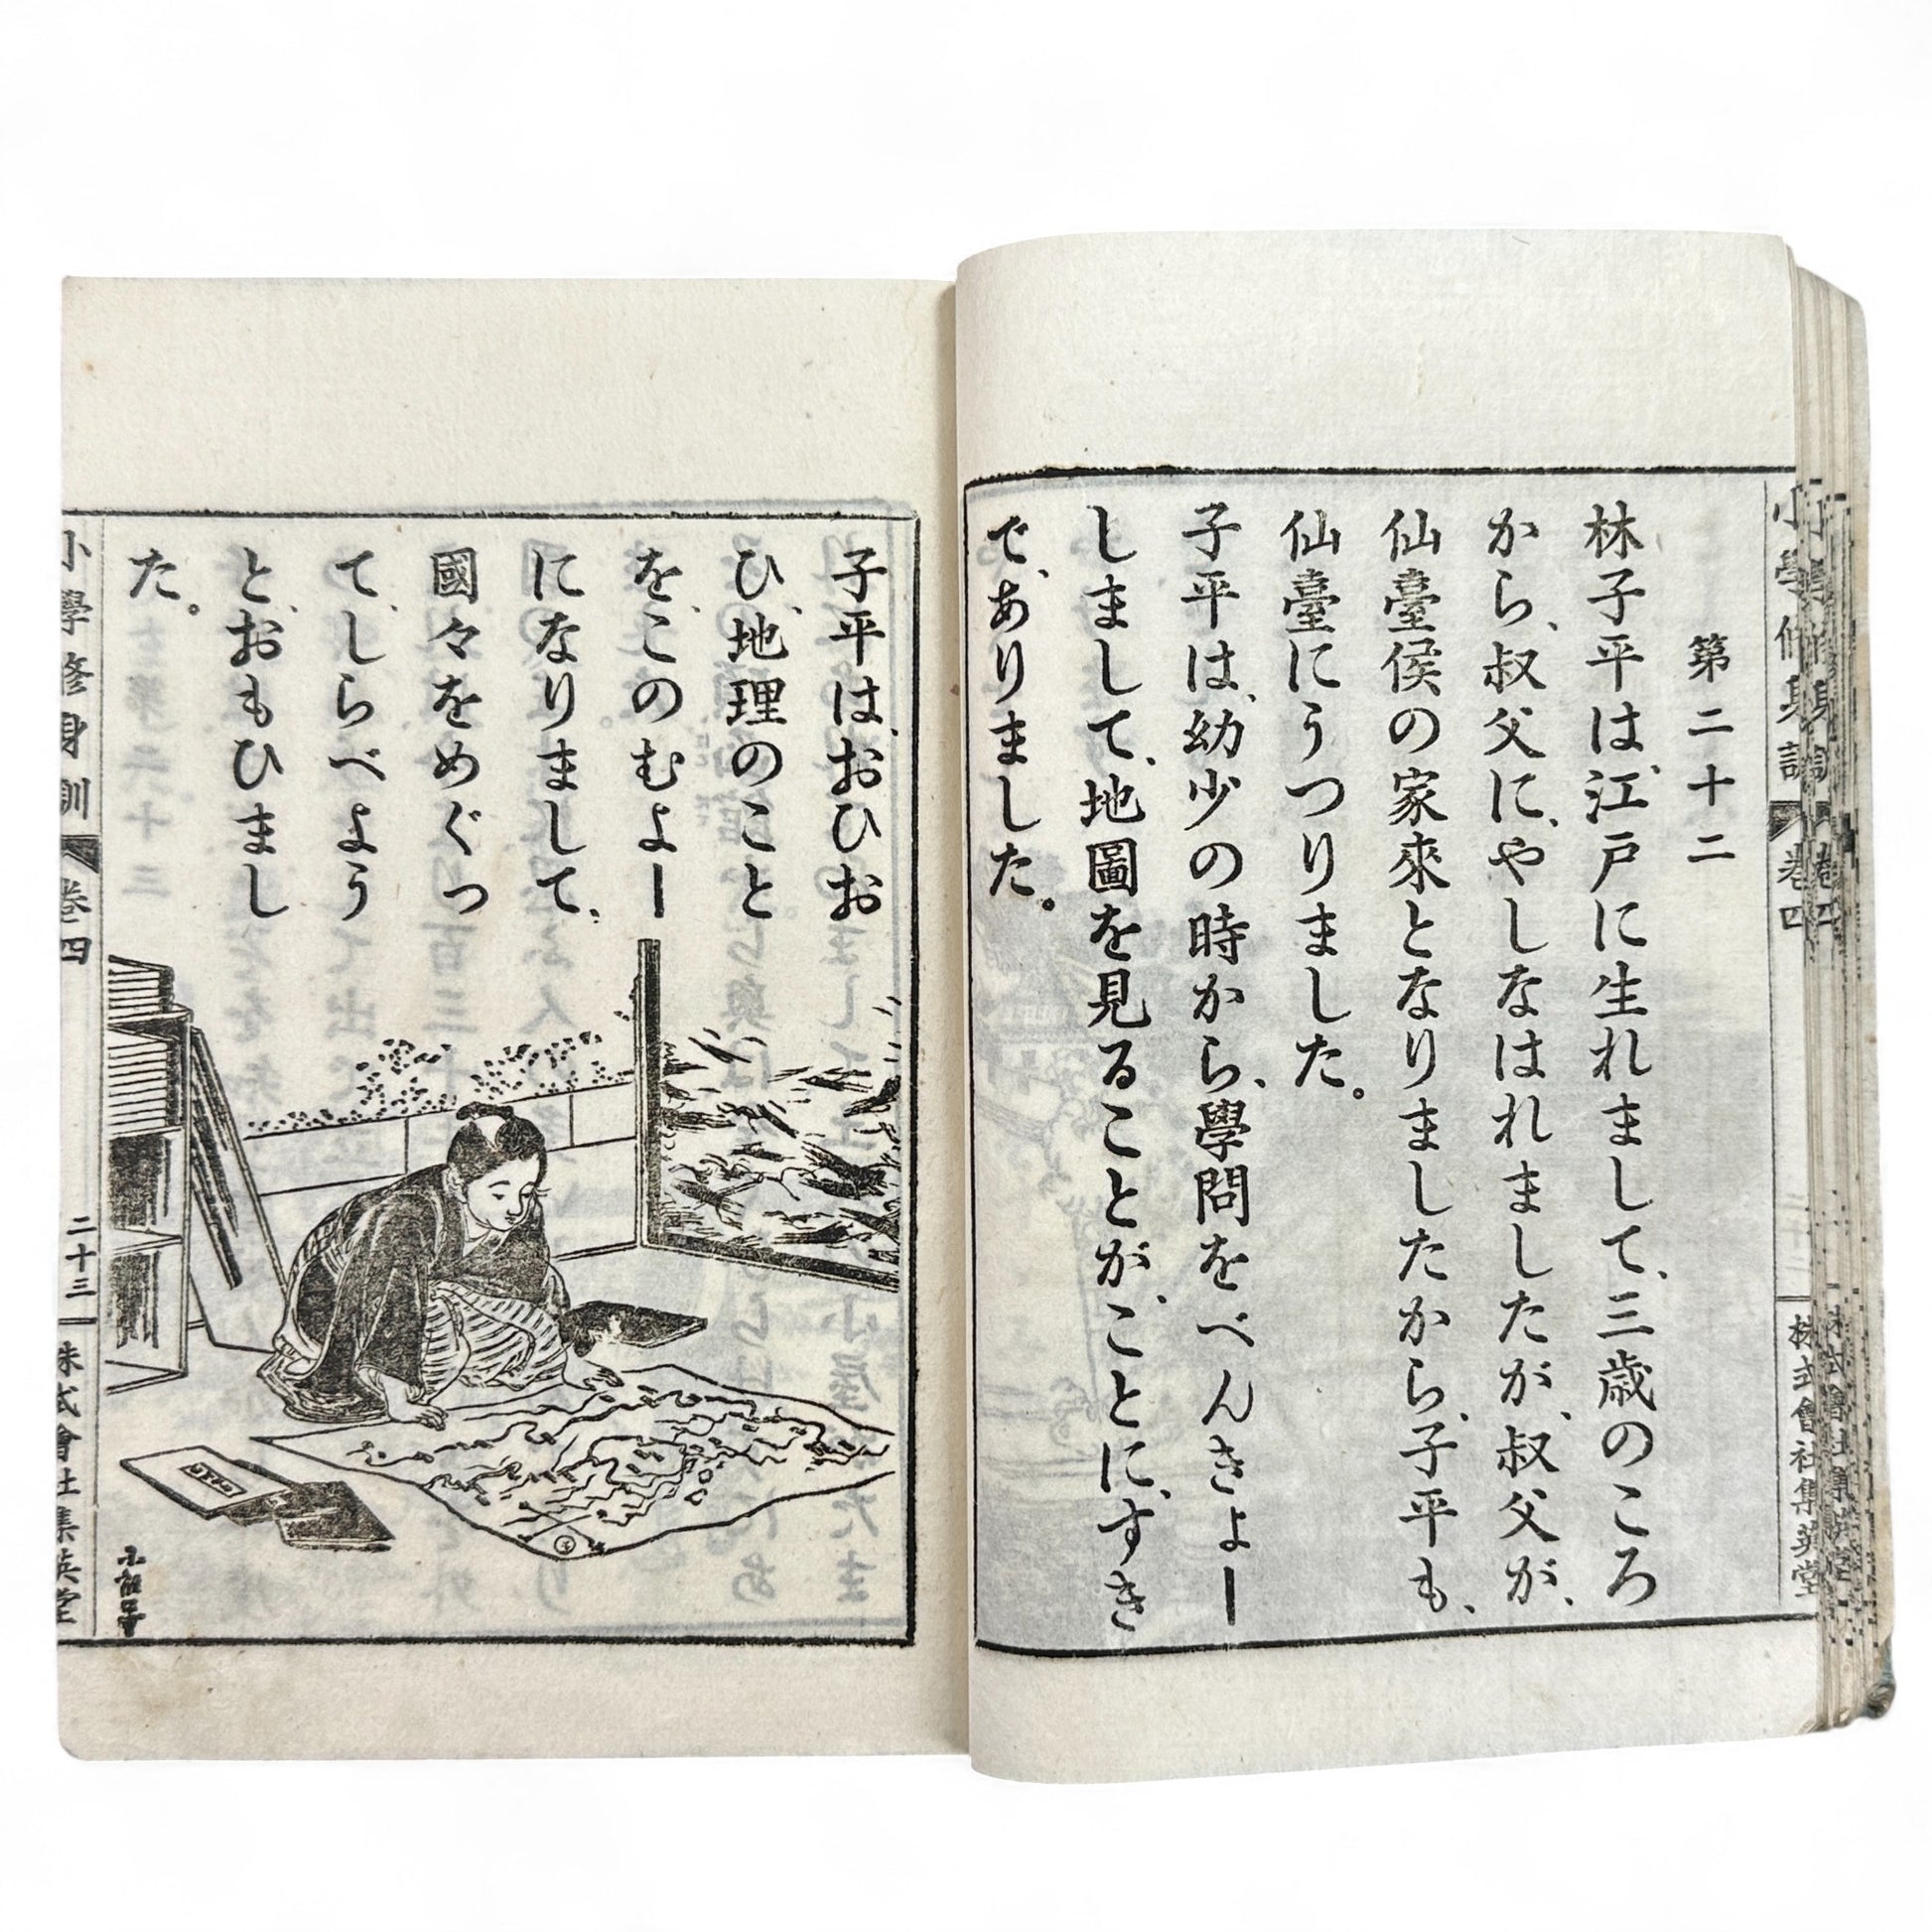 第二十二
林子平は、江戸に生れまして、三歳のころ
から、叔父に、やしなはれましたが、叔父が、
仙臺侯の家來となりましたから、子平も、
仙臺にうつりました。
子平は、幼少の時から、學問をべんきよー
しまして、地圖を見ることが、ことに、すき
で、ありました。
子平は、おひお
ひ、地理のこと
を、このむよー
になりまして、
國々をめぐつ
て、しらべよう
と、おもひまし
た。
小學修身訓
卷四
二十三
株式會社集英堂
小學修身訓
卷四
株式會社集英堂